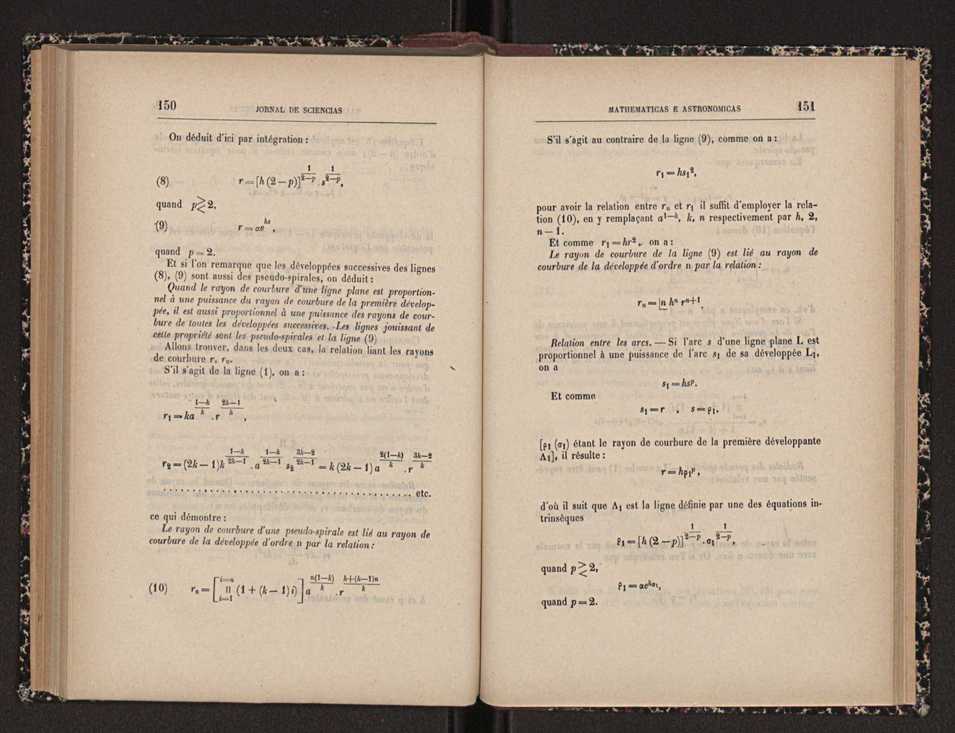 150
JORNAL DE SCIENCIAS
On déduit d'ici par intégration :
(8) r = [h (2 — p)]^{1/(2—p)} . s^{1/(2—p)},
quand p ≷ 2,
(9) r = ae^{hs} ,
quand p = 2.
Et si l'on remarque que les développées successives des lignes
(8), (9) sont aussi des pseudo-spirales, on déduit :
Quand le rayon de courbure d'une ligne plane est proportion-
nel à une puissance du rayon de courbure de la première dévelop-
pée, il est aussi proportionnel à une puissance des rayons de cour-
bure de toutes les développées successives. Les lignes jouissant de
cette propriété sont les pseudo-spirales et la ligne (9)
Allons trouver, dans les deux cas, la relation liant les rayons
de courbure r, rₙ.
S'il s'agit de la ligne (1), on a :
r₁ = ka^{(1—k)/k} . r^{(2k—1)/k} ,
r₂ = (2k — 1)k^{(1—k)/(2k—1)} . a^{(1—k)/(2k—1)} s₂^{(3k—2)/(2k—1)} = k (2k — 1) a^{2(1—k)/k} . r^{(3k—2)/k}
. . . . . . . . . . . . . . . . . . . . . . . . . . . . . . . . . . . . . . . . etc.
ce qui démontre :
Le rayon de courbure d'une pseudo-spirale est lié au rayon de
courbure de la développée d'ordre n par la relation :
(10) rₙ = [ Π_{i=1}^{i=n} (1 + (k — 1) i) ] a^{n(1—k)/k} . r^{(k+(k—1)n)/k}
MATHEMATICAS E ASTRONOMICAS
151
S'il s'agit au contraire de la ligne (9), comme on a :
r₁ = hs₁²,
pour avoir la relation entre rₙ et r₁ il suffit d'employer la rela-
tion (10), en y remplaçant a^{1—k}, k, n respectivement par h, 2,
n — 1.
Et comme r₁ = hr², on a :
Le rayon de courbure de la ligne (9) est lié au rayon de
courbure de la développée d'ordre n par la relation :
rₙ = |n hⁿ rⁿ⁺¹
Relation entre les arcs. — Si l'arc s d'une ligne plane L est
proportionnel à une puissance de l'arc s₁ de sa développée L₁,
on a
s₁ = hs^p.
Et comme
s₁ = r , s = ρ₁,
[ρ₁ (σ₁) étant le rayon de courbure de la première développante
Λ₁], il résulte :
r = hρ₁^p ,
d'où il suit que Λ₁ est la ligne définie par une des équations in-
trinsèques
ρ₁ = [h (2 — p)]^{1/(2—p)} . σ₁^{1/(2—p)},
quand p ≷ 2,
ρ₁ = ae^{hσ₁},
quand p = 2.